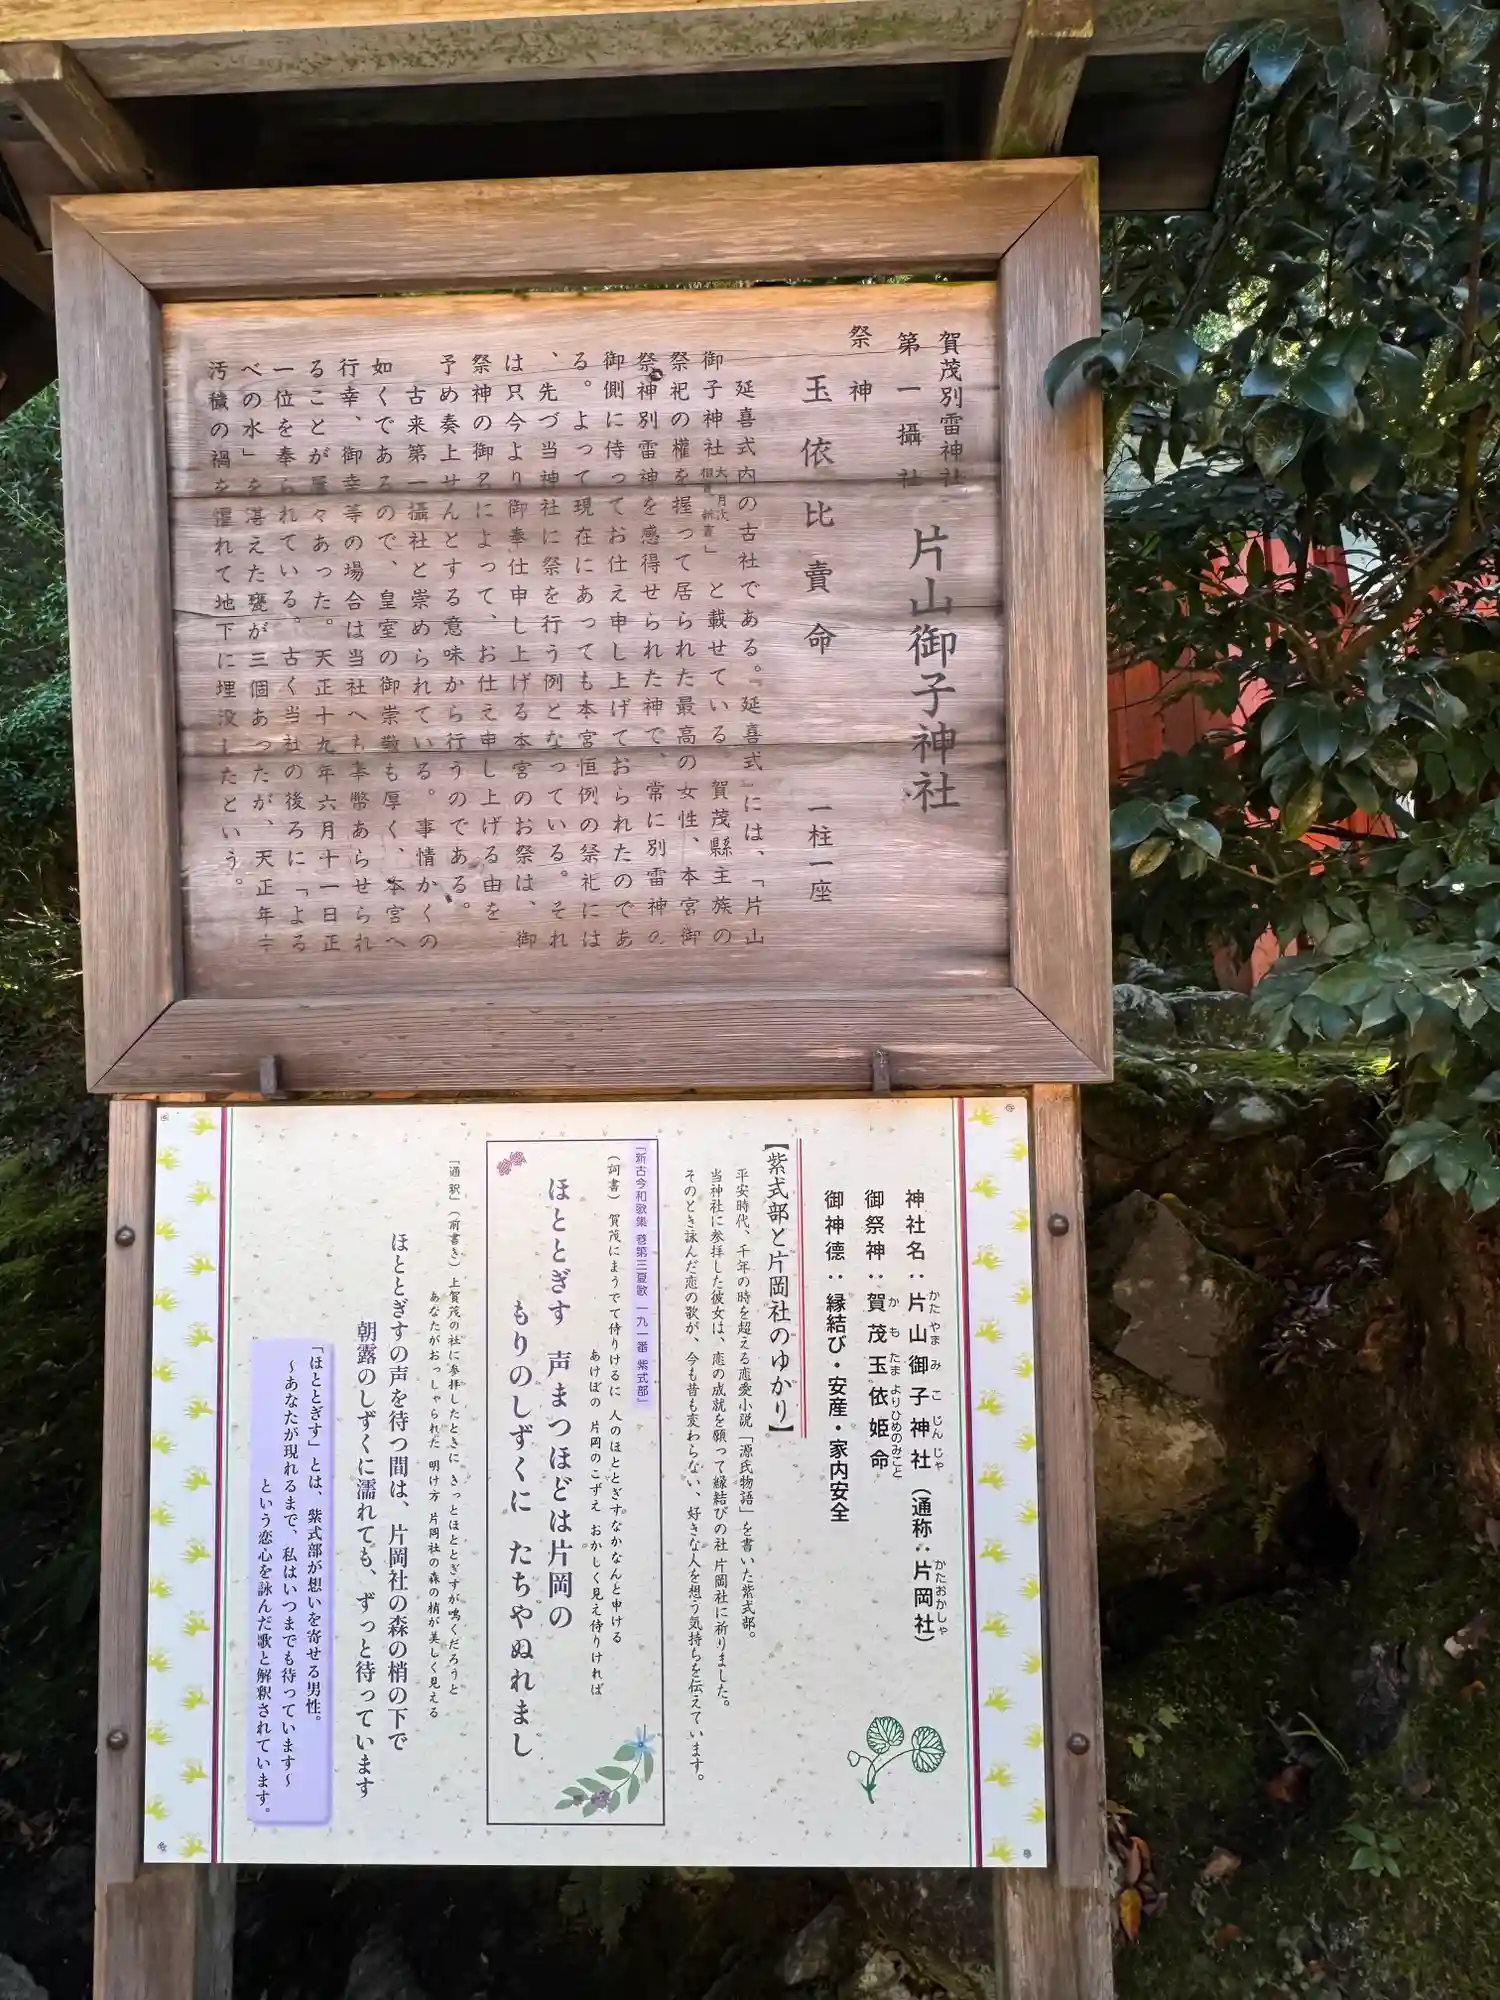 賀茂別雷神社
第一攝社 片山御子神社
祭神
玉依比賣命 一柱一座
延喜式内の古社である。『延喜式』には、「片山
御子神社大月次相嘗新嘗」と載せている 賀茂縣主族の
祭祀の權を握って居られた最高の女性、本宮御
祭神別雷神を感得せられた神で、常に別雷神の
御側に侍ってお仕え申し上げておられたのであ
る。よって現在にあっても本宮恒例の祭祀には
、先づ当神社に祭を行う例となっている。それ
は只今より御奉仕申し上げる本宮のお祭は、御
祭神の御名によって、お仕え申し上げる由を
予め奏上せんとする意味から行うのである。
古来第一攝社と崇められている。事情かくの
如くであるので、皇室の御崇敬も厚く、本宮へ
行幸、御幸等の場合は当社へも奉幣あらせられ
ることが屡々あった。天正十九年六月十一日正
一位を奉られている。古く当社の後ろに「よる
べの水」を湛えた甕が三個あったが、天正年中
汚穢の禍を懼れて地下に埋没したという。
神社名：片山御子神社（通称：片岡社）
かたやまみこじんじゃ かたおかしゃ
御祭神：賀茂玉依姫命
かもたまよりひめのみこと
御神徳：縁結び・安産・家内安全
【紫式部と片岡社のゆかり】
平安時代、千年の時を超える恋愛小説「源氏物語」を書いた紫式部。
当神社に参拝した彼女は、恋の成就を願って縁結びの社 片岡社に祈りました。
そのとき詠んだ恋の歌が、今も昔も変わらない、好きな人を想う気持ちを伝えています。
「新古今和歌集 巻第三夏歌 一九一番 紫式部」
（詞書） 賀茂にまうでて侍りけるに 人のほととぎすなかなんと申ける
あけぼの 片岡のこずえ おかしく見え侍りければ
ほととぎす 声まつほどは片岡の
もりのしずくに たちやぬれまし
「通釈」（前書き）上賀茂の社に参拝したときに きっとほととぎすが鳴くだろうと
あなたがおっしゃられた 明け方 片岡社の森の梢が美しく見える
ほととぎすの声を待つ間は、片岡社の森の梢の下で
朝露のしずくに濡れても、ずっと待っています
「ほととぎす」とは、紫式部が想いを寄せる男性。
～あなたが現れるまで、私はいつまでも待っています～
という恋心を詠んだ歌と解釈されています。